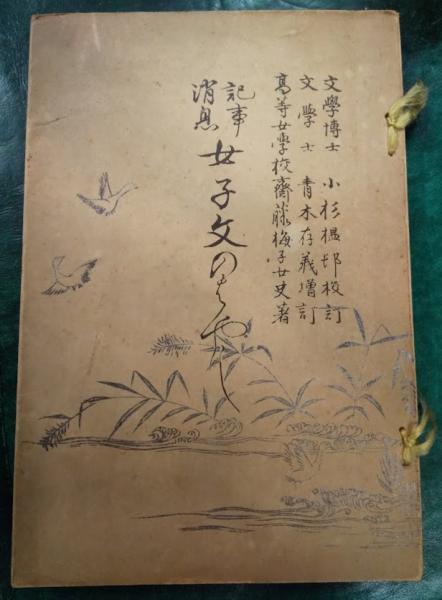 文學博士 小杉榲邨校訂
文學士 青木存義増訂
高等女學校齋藤梅子女史著
記事
消息
女子文のはやし